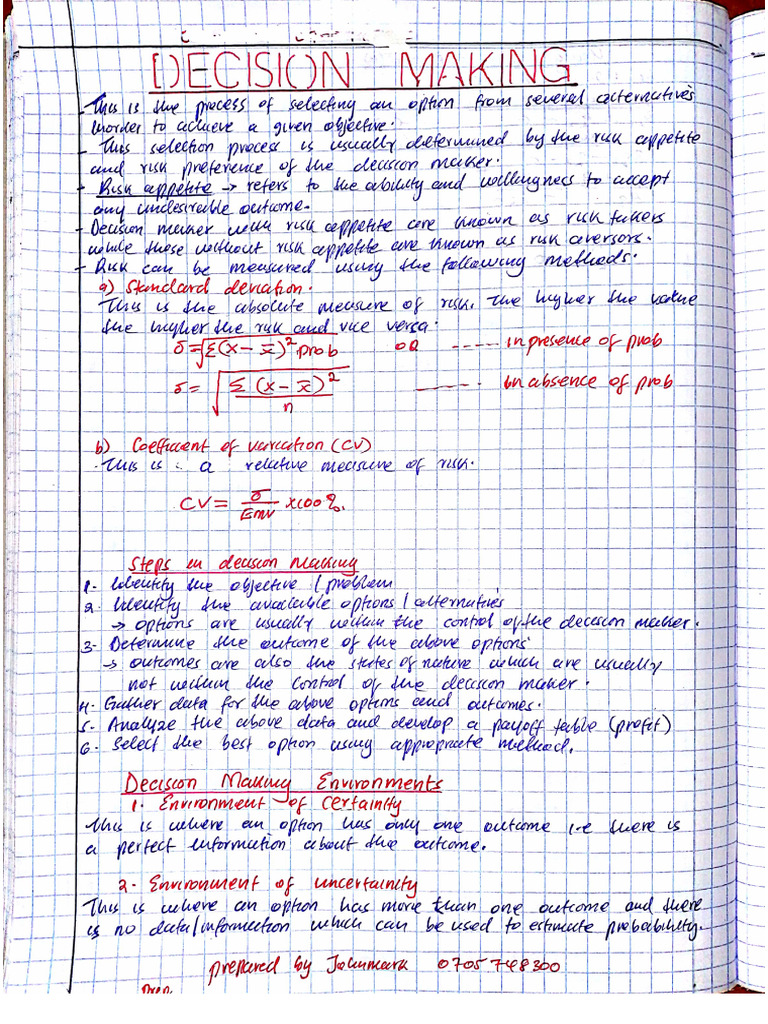 DECISION MAKING
- This is the process of selecting an option from several alternatives
inorder to achieve a given objective.
- This selection process is usually determined by the risk appetite
and risk preference of the decision maker.
- Risk appetite → refers to the ability and willingness to accept
any undesirable outcome.
- Decision maker with risk appetite are known as risk takers
while those without risk appetite are known as risk aversors.
- Risk can be measured using the following methods.
a) Standard deviation.
This is the absolute measure of risk. The higher the value
the higher the risk and vice versa.
δ = √Σ(x - x̄)² prob OR ----- in presence of prob
δ = √Σ(x - x̄)²/n ----- in absence of prob
b) Coefficient of variation (CV)
. This is . a relative measure of risk.
CV = δ/EMV x100%.
Steps in decision making
1. Identify the objective / problem
2. Identify the available options / alternatives
→ options are usually within the control of the decision maker.
3. Determine the outcome of the above options
→ outcomes are also the states of nature which are usually
not within the control of the decision maker.
4. Gather data for the above options and outcomes.
5. Analyze the above data and develop a payoff table (profit)
6. Select the best option using appropriate method.
Decision Making Environments
1. Environment of Certainity
This is where an option has only one outcome i.e there is
a perfect information about the outcome.
2. Environment of uncertainity
This is where an option has more than one outcome and there
is no data/information which can be used to estimate probability.
prepared by Johnmark 0705 748300